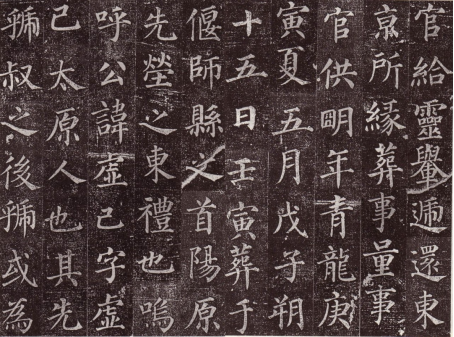 官給靈轝遞還東
京所緣葬事量事
官供明年青龍庚
寅夏五月戊子朔
十五日壬寅葬于
偃師縣之首陽原
先塋之東禮也嗚
呼公諱虛己字虛
己太原人也其先
虢叔之後虢或為